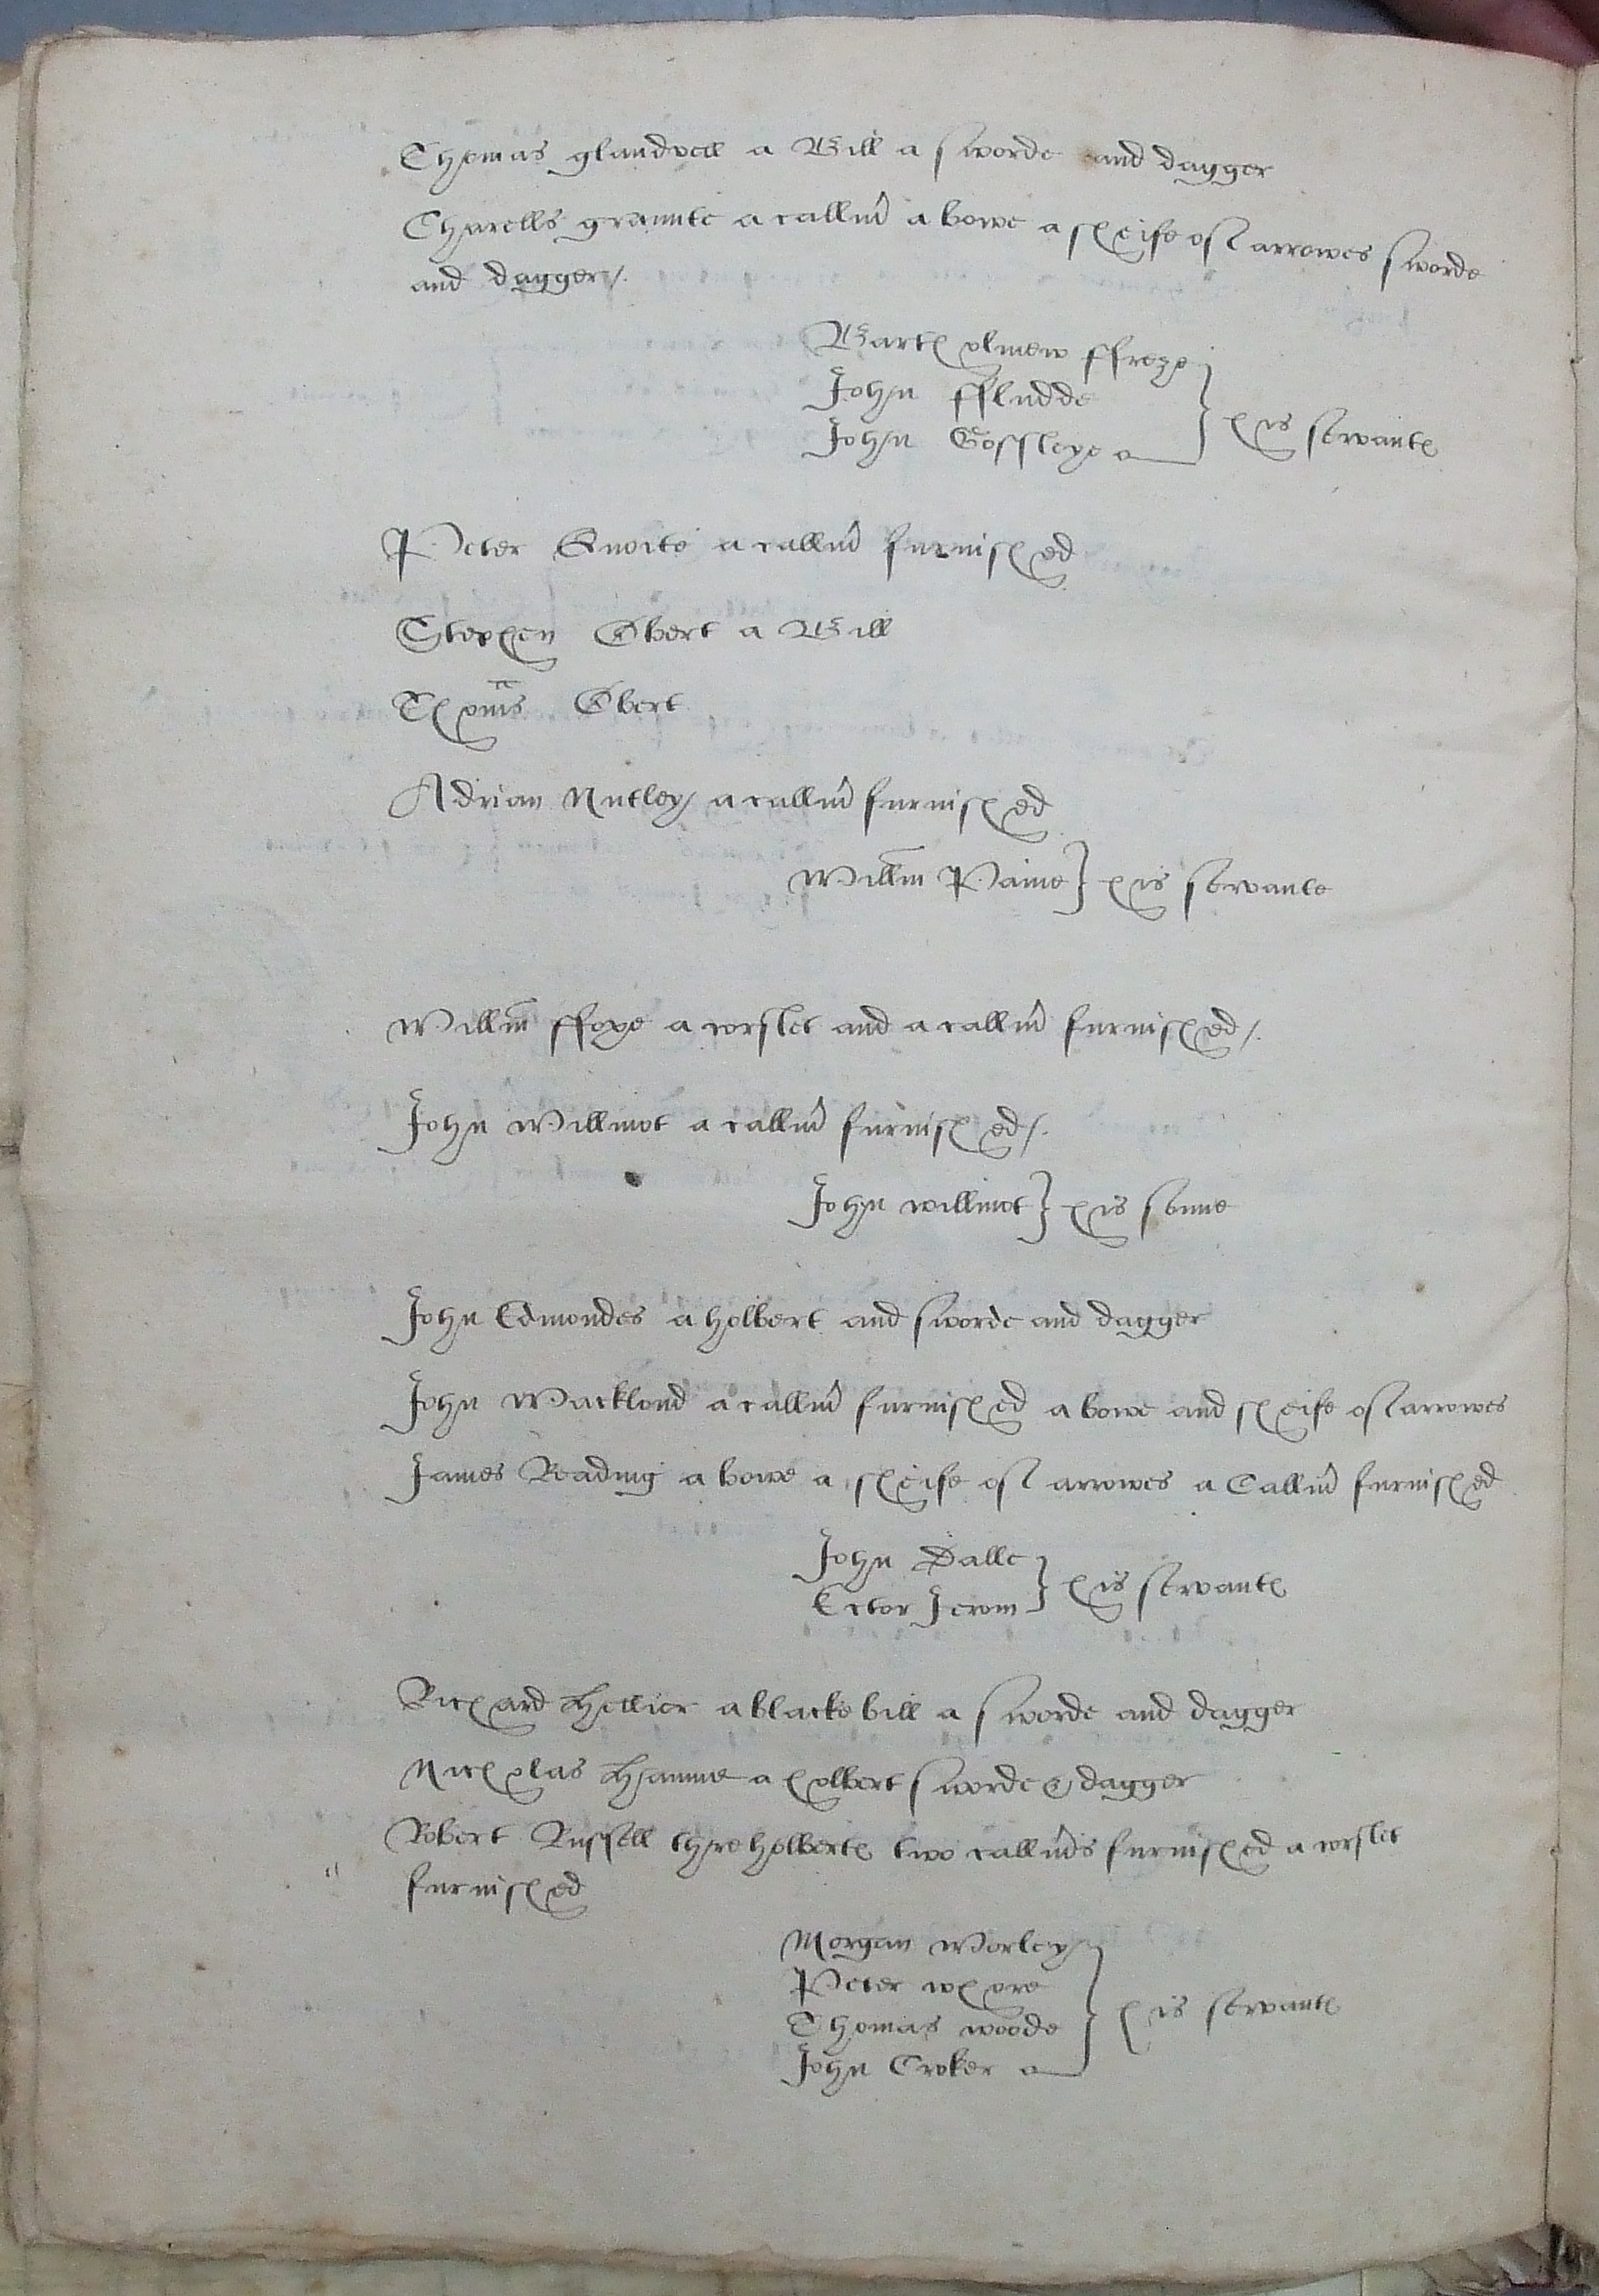 Thomas glandvell a Bill a sworde and dagger
Charells graunte a callīu a bowe a sheife of arrowes sworde
and dagger/.
Bartholmew ffreye
John ffludde
John Gossleye
} his servantes
Peter Knoite a callīu furnished
Stephen Ebert a Bill
Thoms Ebert
Adrian Nutley a callīu furnished
Willm Paine } his servante
Willm ffoye a corslet and a callīu furnished/.
John Willmot a callīu furnished/.
John willmot } his sonne
John Edmondes a holbert and sworde and dagger
John Wacklond a callīu furnished a bowe and sheife of arrowes
James Reading a bowe a sheife of arrowes a Callīu furnished
John Dalle
Ector Jerom
} his servantes
Richard Hellier a blacke bill a sworde and dagger
Nicholas Hamme a holbert sworde & dagger
Robert Russell thre holbertes two callīus furnished a corslet
furnished
Morgan Worley
Peter whore
Thomas woode
John Croker
} his servantes